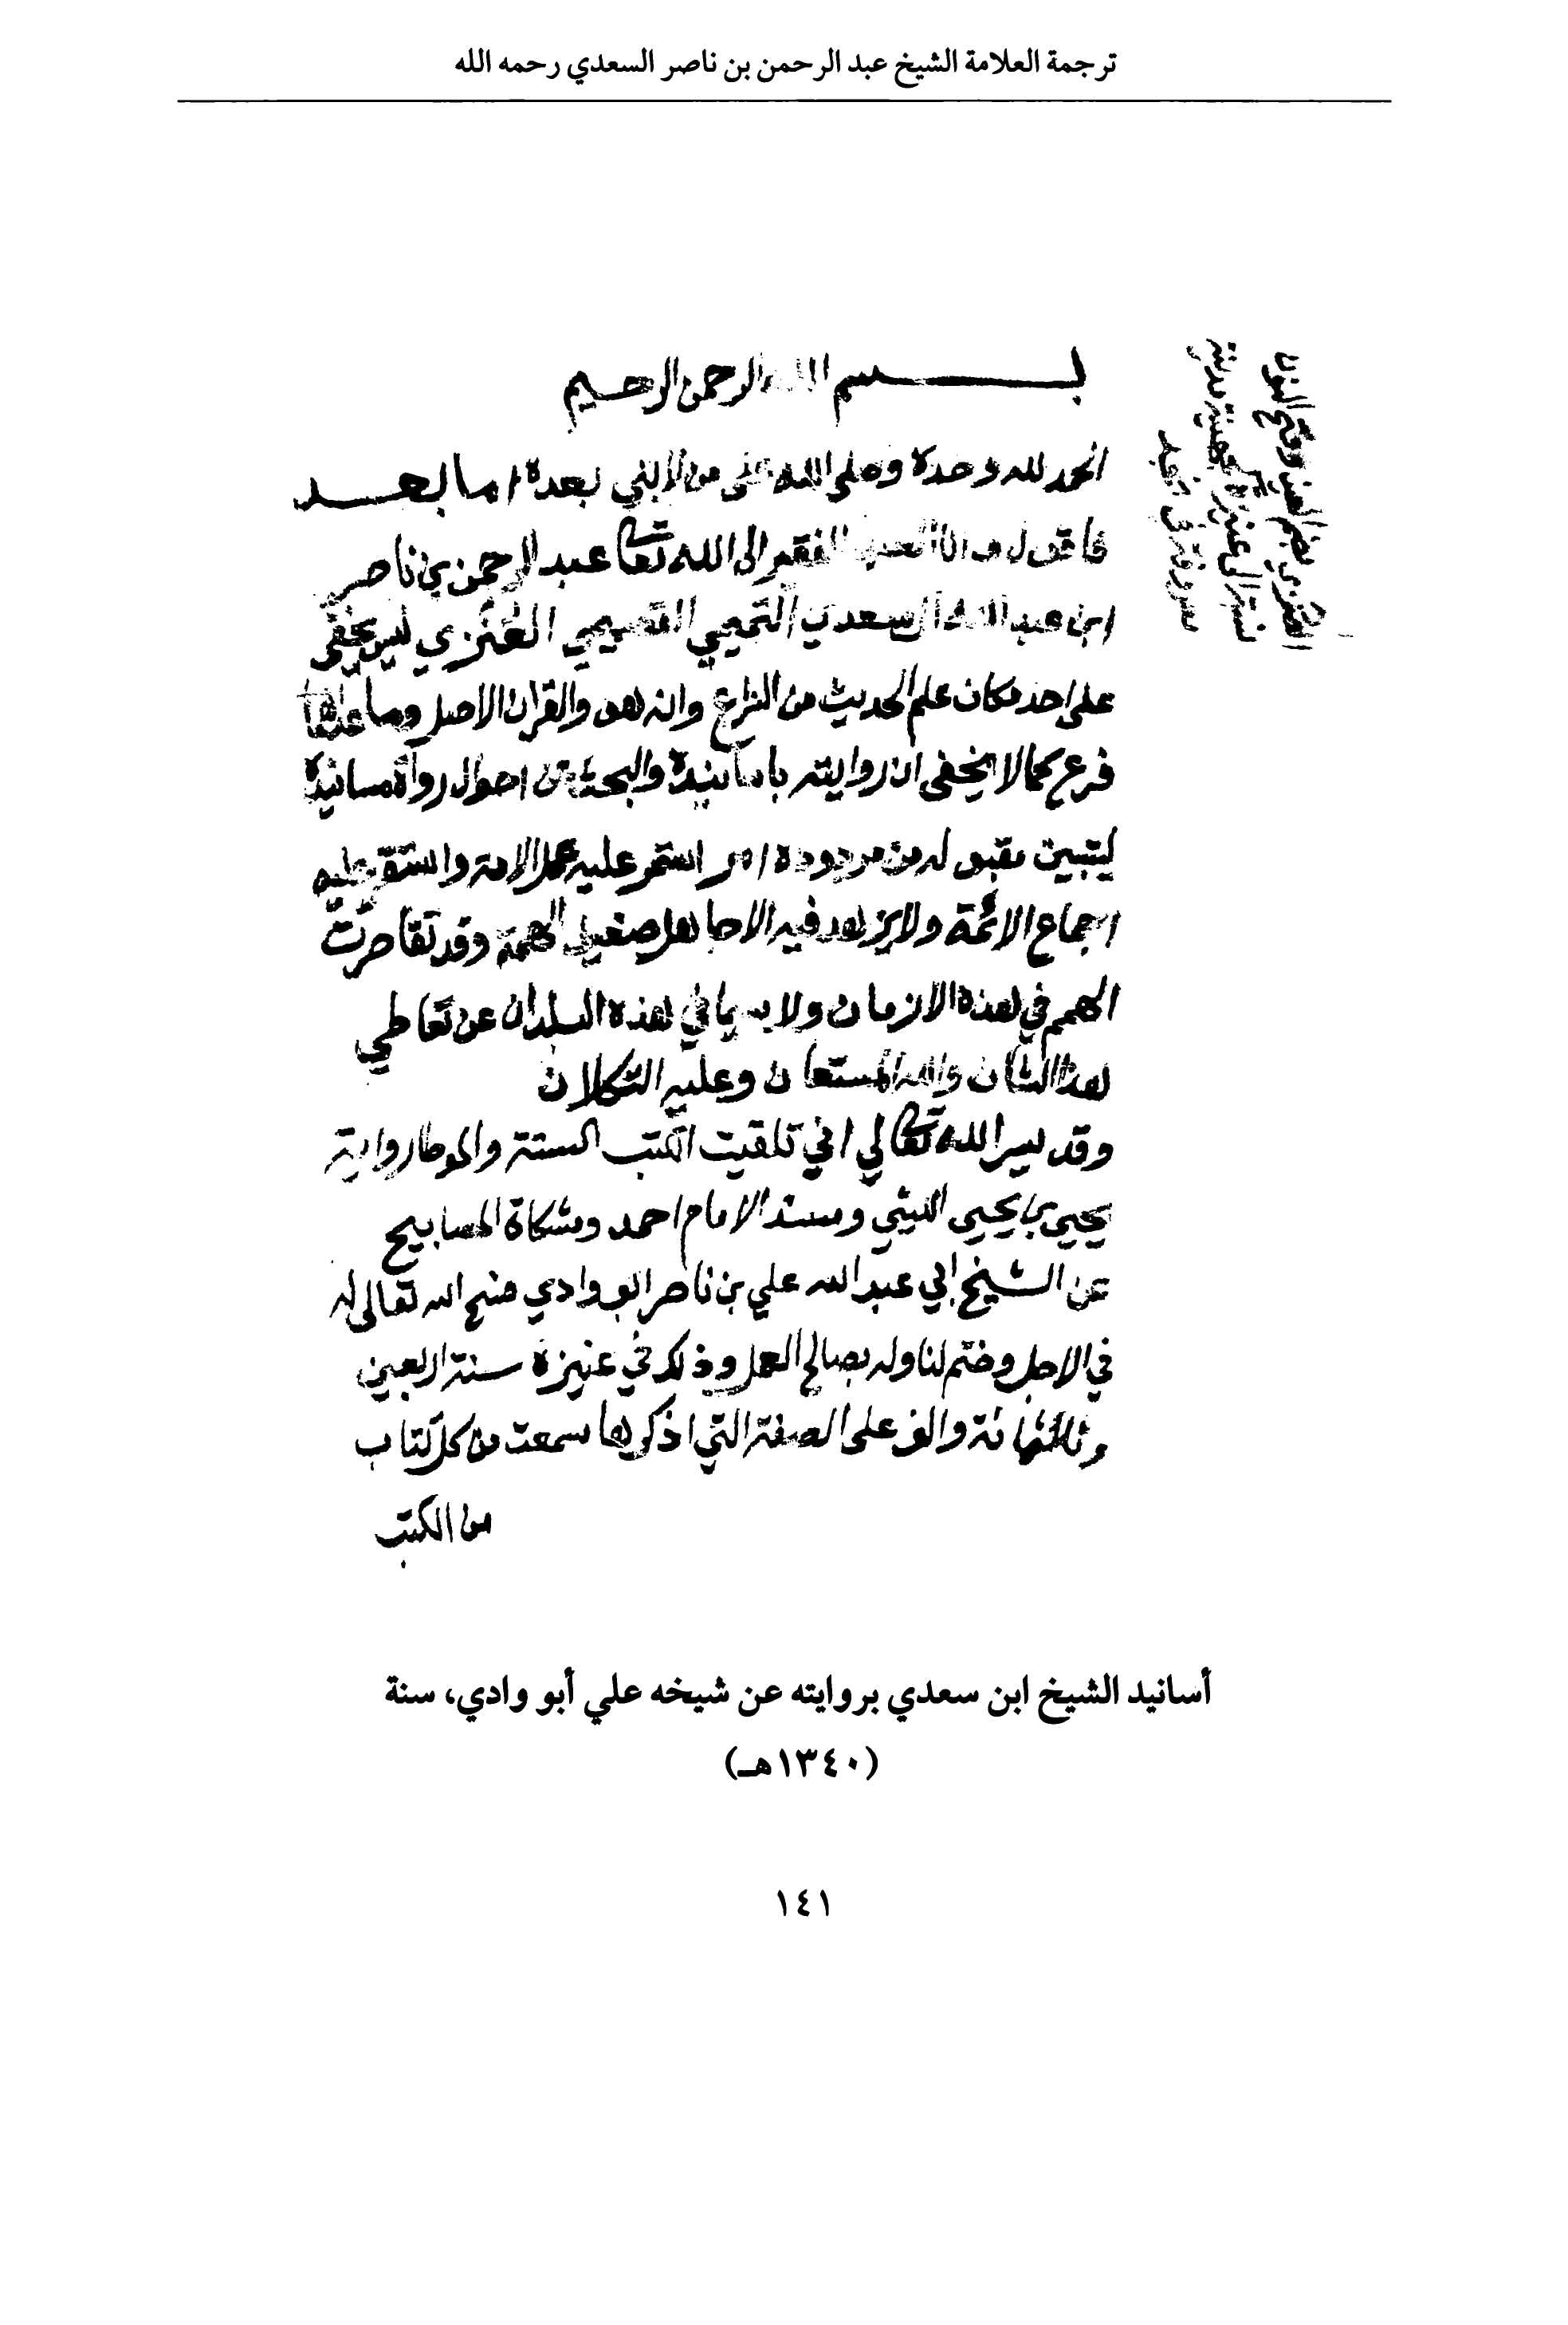 ترجمة العلامة الشيخ عبد الرحمن بن ناصر السعدي رحمه الله
بسم الله الرحمن الرحيم
الحمد لله وحده وصلى الله على من لا نبي بعده اما بعد
فاقول وانا العبد الفقير الى الله تعالى عبد الرحمن بن ناصر
ابن عبد الله ال سعدي التميمي القصيمي العُنَزي ليس يخفى
على احد مكان علم الحديث من الشرع وانه هو والقران الاصل وما عداهما
فرع كما لا يخفى ان روايته باسانيده والبحث عن احوال رواة مسانيده
ليتبين مقبوله من مردوده امر استمر عليه عمل الامة واستقر عليه
اجماع الائمة ولا يزهد فيه الا جاهل صغير الهمة وقد تقاصرت
الهمم في هذه الازمان ولا سيما في هذه البلدان عن تعاطي
هذا الشان والله المستعان وعليه التكلان
وقد يسر الله تعالى لي اني تلقيت الكتب الستة والموطا رواية
يحيى بن يحيى الليثي ومسند الامام احمد ومشكاة المصابيح
عن الشيخ ابي عبد الله علي بن ناصر ابو وادي فسح الله تعالى له
في الاجل وختم لنا وله بصالح العمل وذلك في عنيزة سنة اربعين
وثلثمائة والف على الصفة التي اذكرها سمعت من كل كتاب
من الكتب
العُنَزي بضم العين وفتح النون
نسبة الى عنيزة
أسانيد الشيخ ابن سعدي بروايته عن شيخه علي أبو وادي، سنة
(١٣٤٠هـ)
١٤١